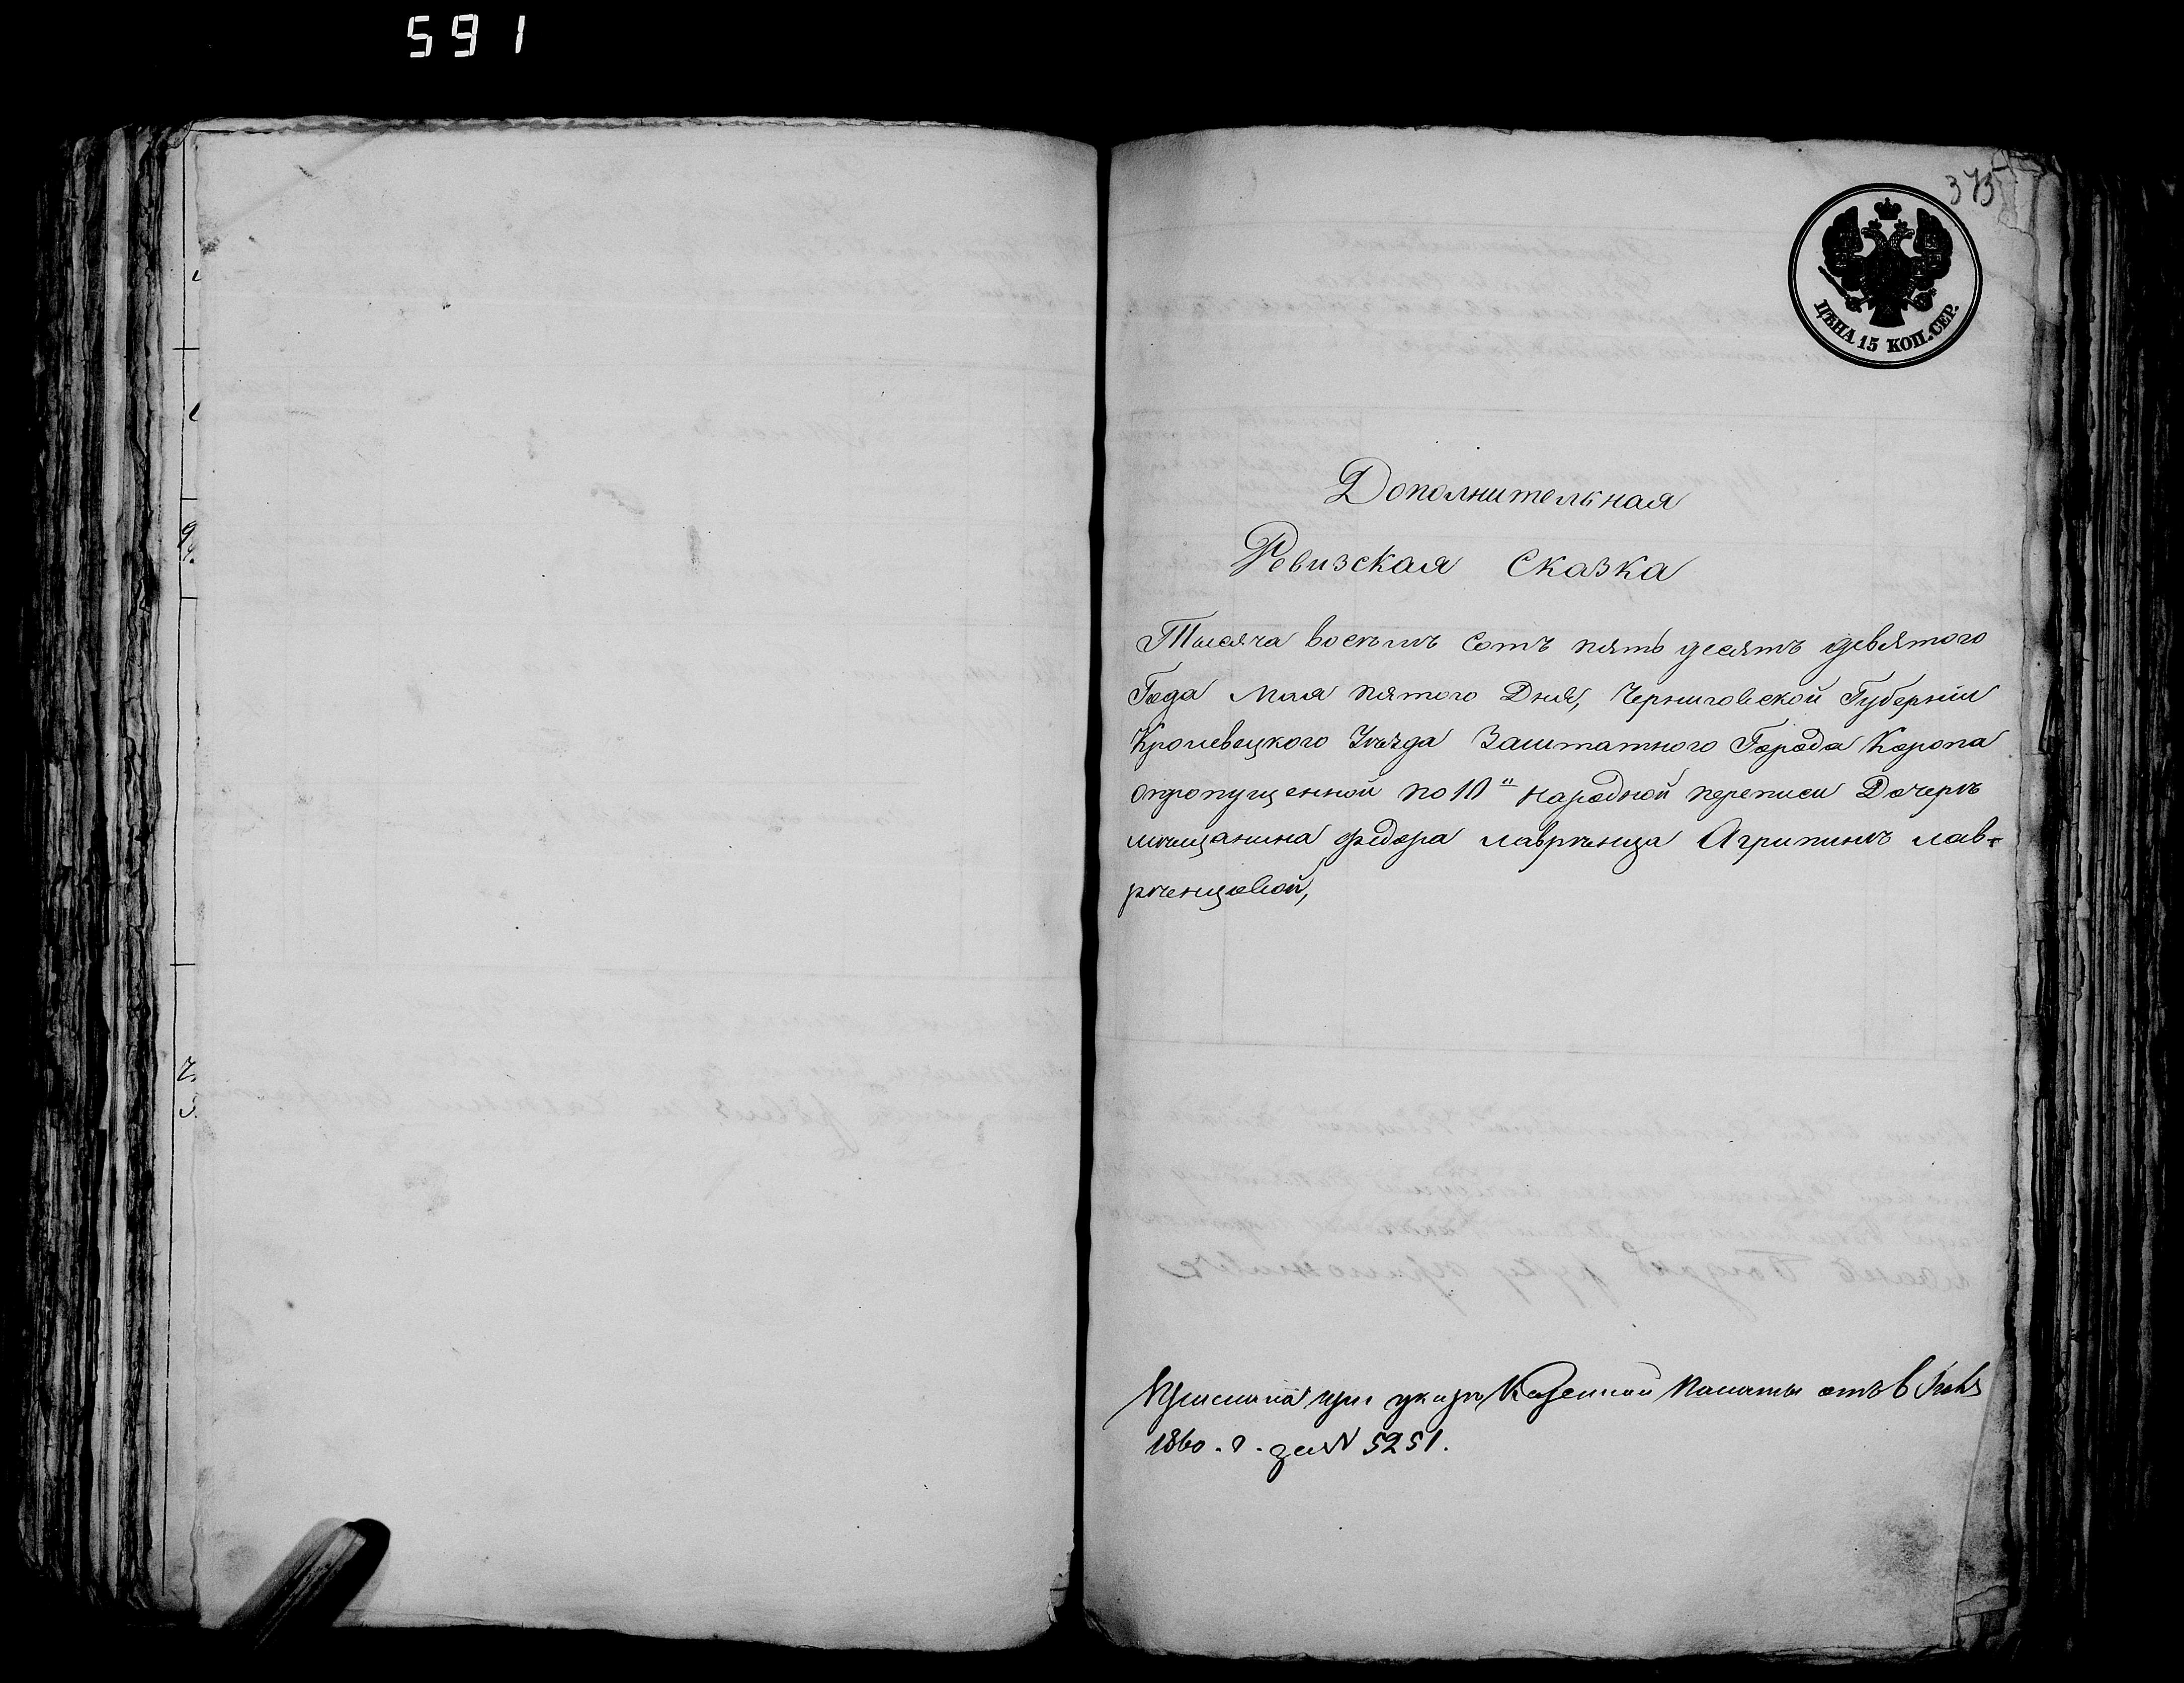 591
375
ЦѢНА 15 КОП. СЕР.
Дополнительная
Ревизская Сказка
Тысяча восѣмъ Сотъ пять десятъ девятого
Года Мая пятого Дня, Черниговской Губерніи
Кролевецкого Уѣзда Заштатного Города Коропа
опропущенной по 10й Народной переписи Дочерѣ
мѣщанина Федора лаврѣнца Агрипинѣ лав-
рѣнцовой,
при указѣ Казенной Палаты отъ 6
1860. г. за N 5251.